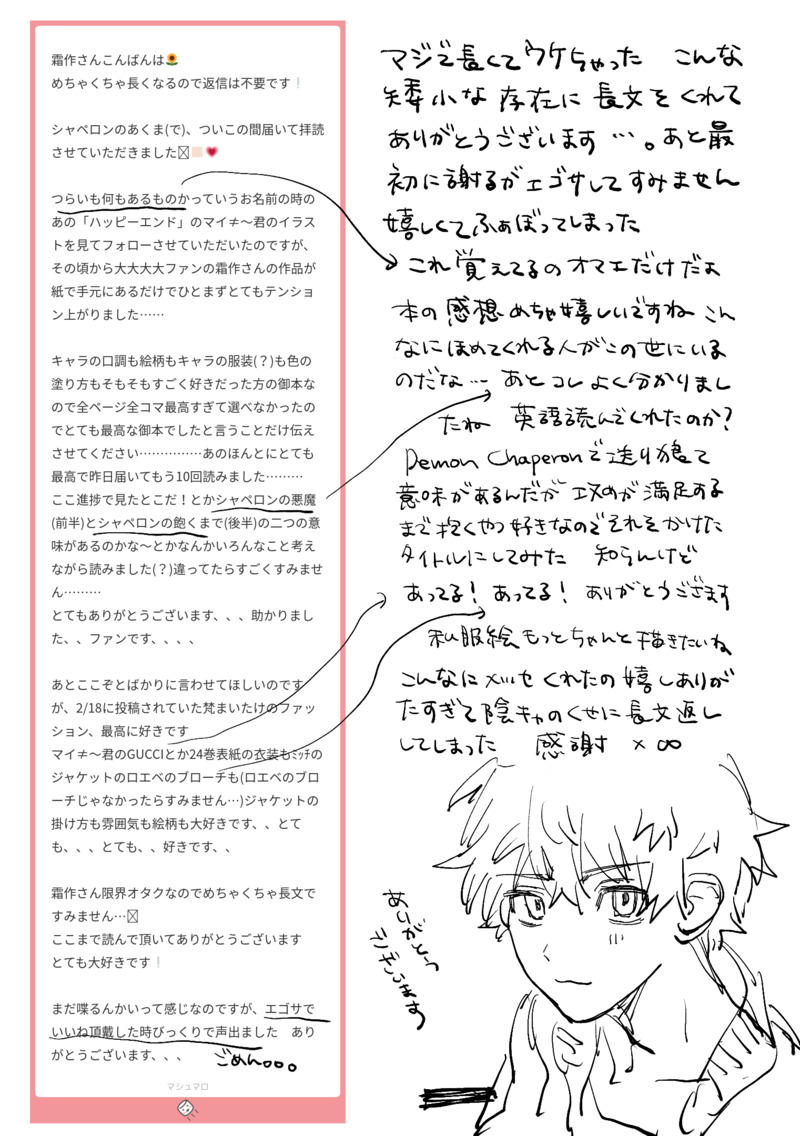 霜作さんこんばんは🌻
めちゃくちゃ長くなるので返信は不要です❕
シャペロンのあくま(で)、ついこの間届いて拝読
させていただきました🏻💗
つらいも何もあるものかっていうお名前の時の
あの「ハッピーエンド」のマイ≠〜君のイラス
トを見てフォローさせていただいたのですが、
その頃から大大大大ファンの霜作さんの作品が
紙で手元にあるだけでひとまずとてもテンショ
ン上がりました……
キャラの口調も絵柄もキャラの服装(？)も色の
塗り方もそもそもすごく好きだった方の御本な
ので全ページ全コマ最高すぎて選べなかったの
でとても最高な御本でしたと言うことだけ伝え
させてください……………あのほんとにとても
最高で昨日届いてもう10回読みました………
ここ進捗で見たとこだ！とかシャペロンの悪魔
(前半)とシャペロンの飽くまで(後半)の二つの意
味があるのかな〜とかなんかいろんなこと考え
ながら読みました(？)違ってたらすごくすみませ
ん………
とてもありがとうございます、、、助かりまし
た、、ファンです、、、、
あとここぞとばかりに言わせてほしいのです
が、2/18に投稿されていた梵まいたけのファッ
ション、最高に好きです
マイ≠〜君のGUCCIとか24巻表紙の衣装もﾐｯﾁの
ジャケットのロエベのブローチも(ロエベのブロ
ーチじゃなかったらすみません…)ジャケットの
掛け方も雰囲気も絵柄も大好きです、、とて
も、、、とても、、好きです、、
霜作さん限界オタクなのでめちゃくちゃ長文で
すみません…
ここまで読んで頂いてありがとうございます
とても大好きです❕
まだ喋るんかいって感じなのですが、エゴサで
いいね頂戴した時びっくりで声出ました　あり
がとうございます、、、
ごめん。。。
マシュマロ
マジで長くてウケちゃった　こんな
矮小な存在に長文をくれて
ありがとうございます…。あと最
初に謝るがエゴサしてすみません
嬉しくてふぁぼってしまった
これ覚えてるのオマエだけだよ
本の感想めちゃ嬉しいですね こん
なにほめてくれる人がこの世にいる
のだな… あとコレよく分かりまし
たね 英語読んでくれたのか？
Demon Chaperonで送り狼て
意味があるんだが 攻めが満足する
まで抱くやつ好きなのでそれをかけた
タイトルにしてみた 知らんけど
あってる！ あってる！ ありがとうござます
私服絵もっとちゃんと描きたいね
こんなにメッセくれたの嬉しありが
たすぎて陰キャのくせに長文返し
してしまった 感謝×∞
ありがとう
ございます